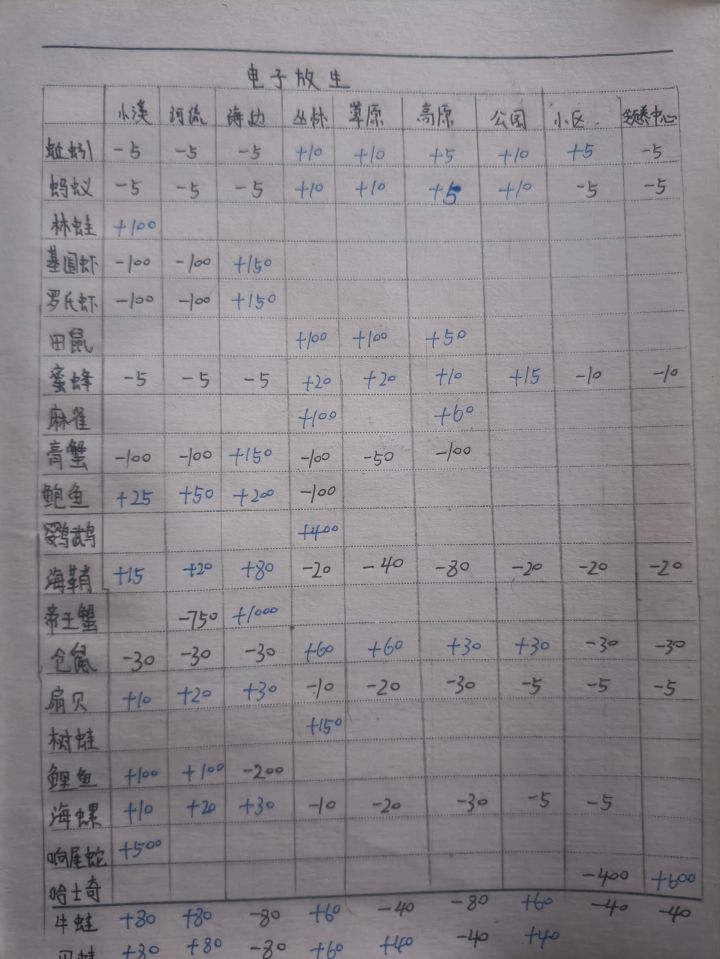 电子放生
小溪 河流 海边 丛林 草原 高原 公园 小区 领养中心
蚯蚓 -5 -5 -5 +10 +10 +5 +10 +5 -5
蚂蚁 -5 -5 -5 +10 +10 +5 +10 -5 -5
林蛙 +100
基围虾 -100 -100 +150
罗氏虾 -100 -100 +150
田鼠 +100 +100 +50
蜜蜂 -5 -5 -5 +20 +20 +10 +15 -10 -10
麻雀 +100 +60
青蟹 -100 -100 +150 -100 -50 -100
鲍鱼 +25 +50 +200 -100
鹦鹉 +400
海鞘 +15 +20 +80 -20 -40 -80 -20 -20 -20
帝王蟹 -750 +1000
仓鼠 -30 -30 -30 +60 +60 +30 +30 -30 -30
扇贝 +10 +20 +30 -10 -20 -30 -5 -5 -5
树蛙 +150
鲤鱼 +100 +100 -200
海螺 +10 +20 +30 -10 -20 -30 -5 -5
响尾蛇 +500
哈士奇 -400 +600
牛蛙 +80 +80 -80 +60 -40 -80 +60 -40 -40
+80 +80 -80 +60 +40 -40 +40